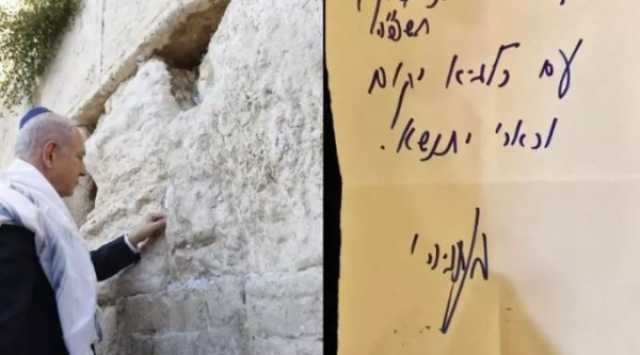 תשפ"ה
עם כלביא יקום
וכארי יתנשא.